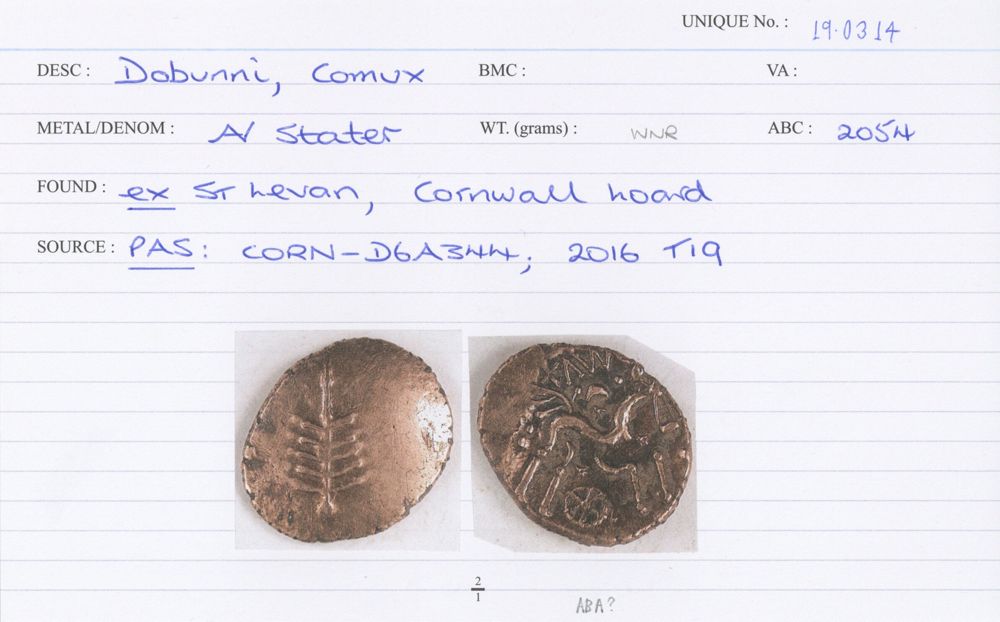 UNIQUE No. : 19.0314
DESC : Dobunni, Comux BMC : VA :
METAL/DENOM : A/ Stater WT. (grams) : WNR ABC : 2054
FOUND : ex St Levan, Cornwall hoard
SOURCE : PAS: CORN-D6A344; 2016 T19
2
1
ABA?